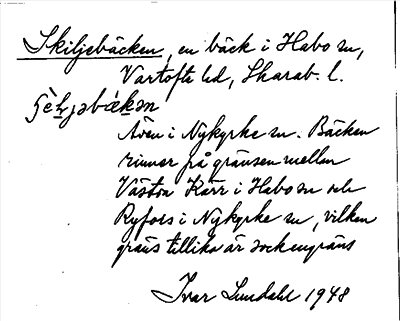 Skiljebäcken, en bäck i Habo sn,
Vartofte hd, Skarab. l.
Även i Nykyrke sn. Bäcken
rinner på gränsen mellan
Västra Kärr i Habo sn och
Ryfors i Nykyrke sn, vilken
gräns tillika är sockengräns
Ivar Lundahl 1948